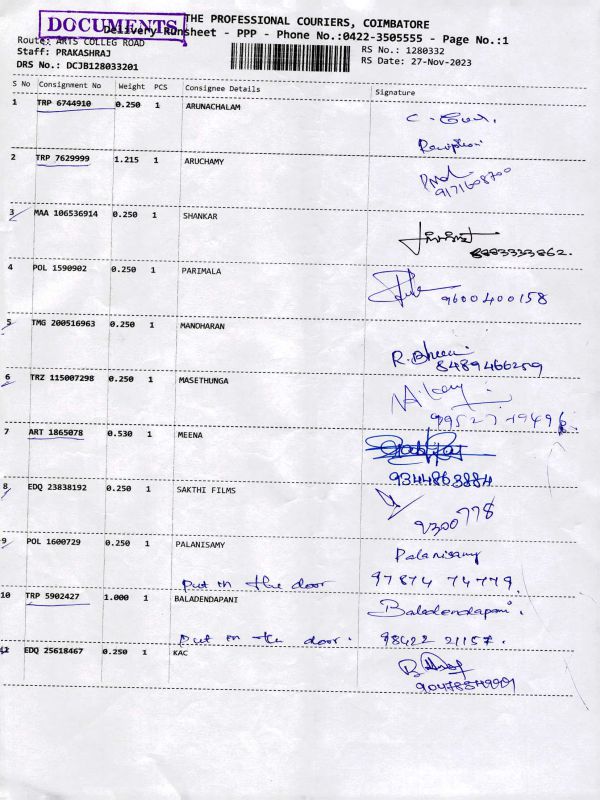 DOCUMENTS
THE PROFESSIONAL COURIERS, COIMBATORE
Delivery Runsheet - PPP - Phone No.:0422-3505555 - Page No.:1
Route: ARTS COLLEG ROAD
RS No.: 1280332
Staff: PRAKASHRAJ
RS Date: 27-Nov-2023
DRS No.: DCJB128033201
S No Consignment No Weight PCS Consignee Details Signature
1 TRP 6744910 0.250 1 ARUNACHALAM
Reception
2 TRP 7629999 1.215 1 ARUCHAMY
9171608700
3 MAA 106536914 0.250 1 SHANKAR
8883333862.
4 POL 1590902 0.250 1 PARIMALA
9600400158
5 TMG 200516963 0.250 1 MANOHARAN
8489466259
6 TRZ 115007298 0.250 1 MASETHUNGA
7 ART 1865078 0.530 1 MEENA
9344863884
8 EDQ 23838192 0.250 1 SAKTHI FILMS
9300778
9 POL 1600729 0.250 1 PALANISAMY Palanisamy
put in the door 97874 74779.
10 TRP 5902427 1.000 1 BALADENDAPANI Baladendapani
put in the door. 98422 21157.
EDQ 25618467 0.250 1 KAC